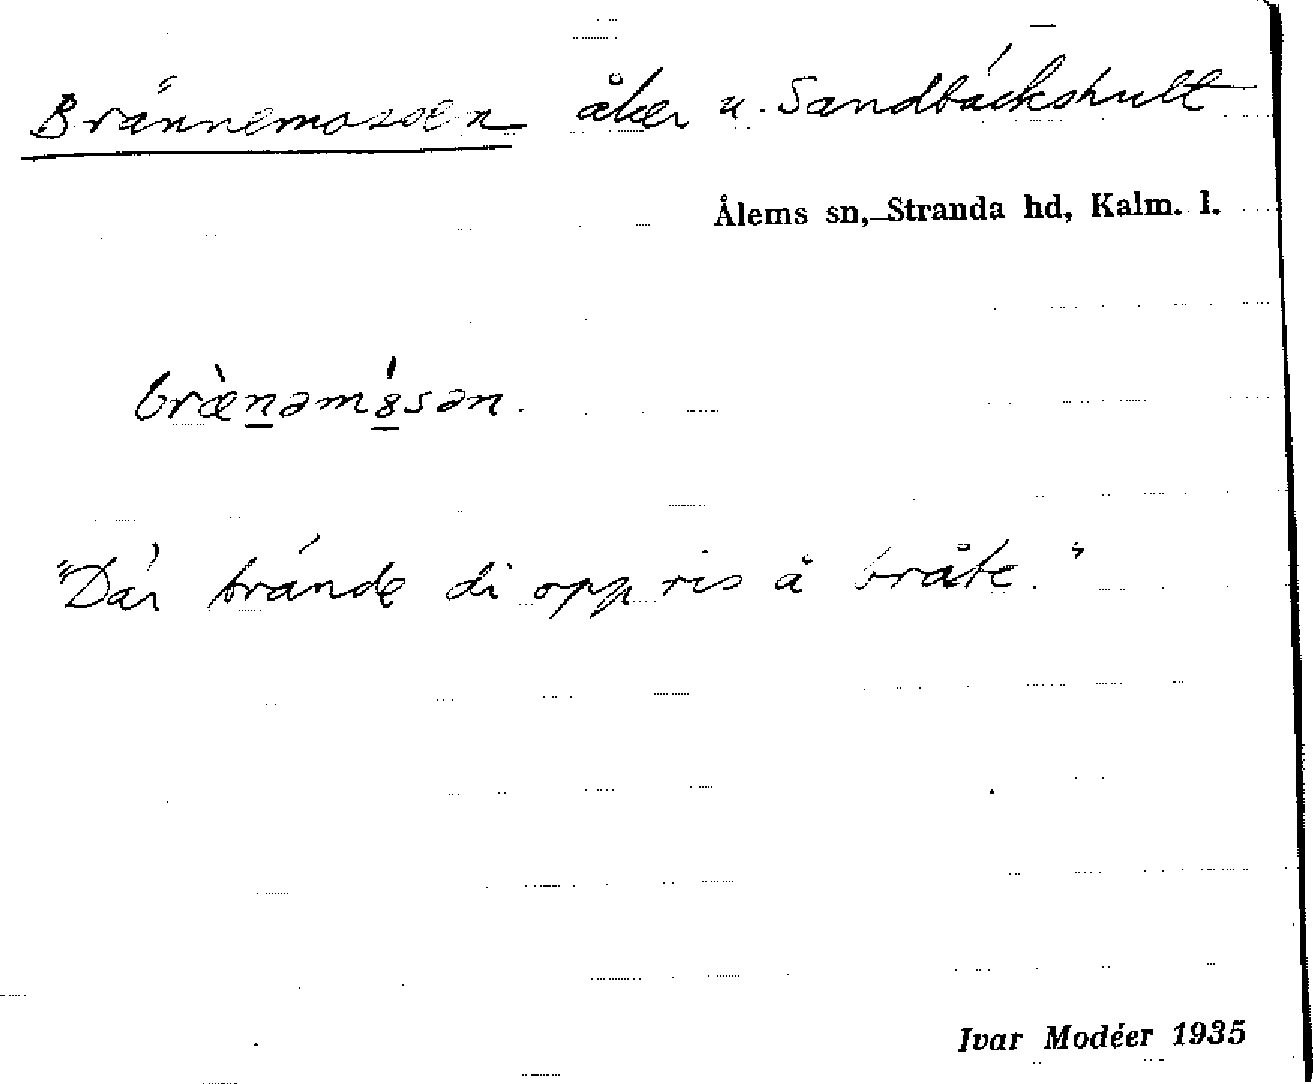 Brännemossen åker u. Sandbäckshult
Ålems sn, Stranda hd, Kalm. l.
bræ̀nəmósən.
"Där brände di opp ris å bråte."
Ivar Modéer 1935